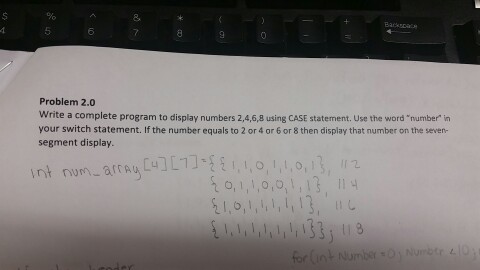 $ % ^ & * ( ) — + Backspace
4 5 6 7 8 9 0 - =
Problem 2.0
Write a complete program to display numbers 2,4,6,8 using CASE statement. Use the word "number" in
your switch statement. If the number equals to 2 or 4 or 6 or 8 then display that number on the seven-
segment display.
int num_array[4][7]={{1,1,0,1,1,0,1}, //2
{0,1,1,0,0,1,1}, //4
{1,0,1,1,1,1,1}, //6
{1,1,1,1,1,1,1}}; //8
for(int Number=0; Number <10;